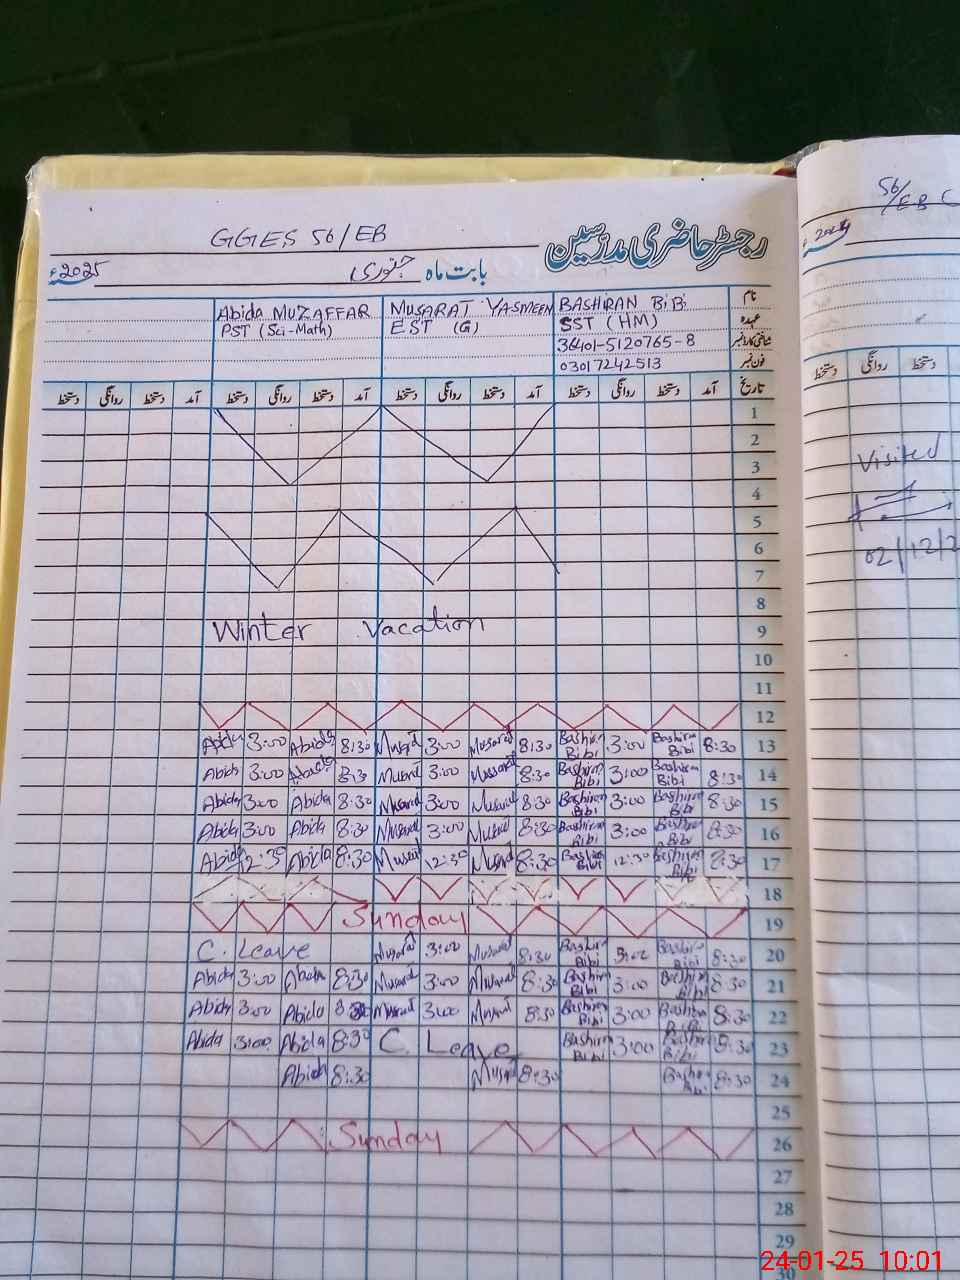 GGES 56/EB
رجسٹر حاضری مدرسین
بابت ماہ جنوری 2025ء
نام BASHIRAN BiBi MUSARAT YASMEEN Abida MUZAFFAR
عہدہ SST (HM) EST (G) PST (Sci-Math)
شناختی کارڈ نمبر 36401-5120765-8
فون نمبر 03017242513
تاریخ آمد دستخط روانگی دستخط آمد دستخط روانگی دستخط آمد دستخط روانگی دستخط آمد دستخط روانگی دستخط
1
2
3
4
5
6
7
8
Winter Vacation 9
10
11
12
Abida 3:00 Abida 8:30 Musarat 3:00 Musarat 8:30 Bashiran Bibi 3:00 Bashiran Bibi 8:30 13
Abida 3:00 Abida 8:30 Musarat 3:00 Musarat 8:30 Bashiran Bibi 3:00 Bashiran Bibi 8:30 14
Abida 3:00 Abida 8:30 Musarat 3:00 Musarat 8:30 Bashiran Bibi 3:00 Bashiran Bibi 8:30 15
Abida 3:00 Abida 8:30 Musarat 3:00 Musarat 8:30 Bashiran Bibi 3:00 Bashiran Bibi 8:30 16
Abida 12:30 Abida 8:30 Musarat 12:30 Musarat 8:30 Bashiran Bibi 12:30 Bashiran Bibi 8:30 17
18
Sunday 19
C. Leave Musarat 3:00 Musarat 8:30 Bashiran Bibi 3:00 Bashiran Bibi 8:30 20
Abida 3:00 Abida 8:30 Musarat 3:00 Musarat 8:30 Bashiran Bibi 3:00 Bashiran Bibi 8:30 21
Abida 3:00 Abida 8:30 Musarat 3:00 Musarat 8:30 Bashiran Bibi 3:00 Bashiran Bibi 8:30 22
Abida 3:00 Abida 8:30 C. Leave Bashiran Bibi 3:00 Bashiran Bibi 8:30 23
Abida 8:30 Musarat 8:30 Bashiran Bibi 8:30 24
25
Sunday 26
27
28
29
30
56/EB
دستخط روانگی دستخط
Visited
02/12/2
24-01-25 10:01